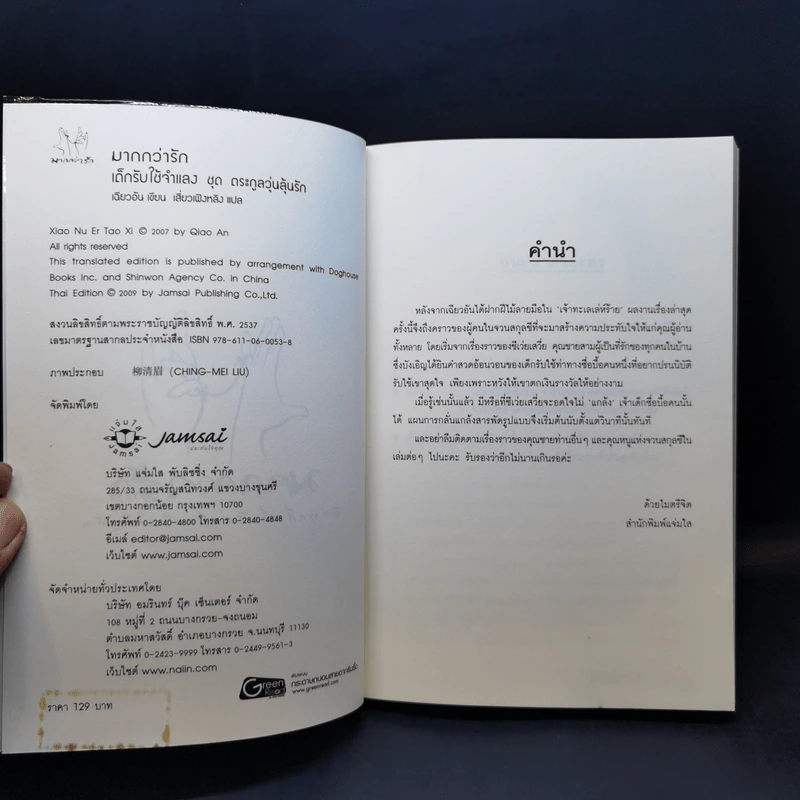 มากกว่ารัก
มากกว่ารัก
เด็กรับใช้จำแลง ชุด ตระกูลวุ่นลุ้นรัก
เฉียวอัน เขียน เสี่ยวเฟิงหลิง แปล
Xiao Nu Er Tao Xi © 2007 by Qiao An
All rights reserved
This translated edition is published by arrangement with Doghouse
Books Inc. and Shinwon Agency Co. in China
Thai Edition © 2009 by Jamsai Publishing Co.,Ltd.
สงวนลิขสิทธิ์ตามพระราชบัญญัติลิขสิทธิ์ พ.ศ. 2537
เลขมาตรฐานสากลประจำหนังสือ ISBN 978-611-06-0053-8
ภาพประกอบ 柳清眉 (CHING-MEI LIU)
จัดพิมพ์โดย
แจ่มใส
Jamsai
Jamsai
บริษัท แจ่มใส พับลิชชิ่ง จำกัด
285/33 ถนนจรัญสนิทวงศ์ แขวงบางขุนศรี
เขตบางกอกน้อย กรุงเทพฯ 10700
โทรศัพท์ 0-2840-4800 โทรสาร 0-2840-4848
อีเมล์ editor@jamsai.com
เว็บไซต์ www.jamsai.com
จัดจำหน่ายทั่วประเทศโดย
บริษัท อมรินทร์ บุ๊ค เซ็นเตอร์ จำกัด
108 หมู่ที่ 2 ถนนบางกรวย-จงถนอม
ตำบลมหาสวัสดิ์ อำเภอบางกรวย จ.นนทบุรี 11130
โทรศัพท์ 0-2423-9999 โทรสาร 0-2449-9561-3
เว็บไซต์ www.naiin.com
Green Read
กระดาษถนอมสายตากรีนรี้ด
www.greenread.com
ราคา 129 บาท
คำนำ
หลังจากเฉียวอันได้ฝากฝีไม้ลายมือใน 'เจ้าทะเลเล่ห์ร้าย' ผลงานเรื่องล่าสุด
ครั้งนี้จึงถึงคราวของผู้คนในจวนสกุลซีที่จะมาสร้างความประทับใจให้แก่คุณผู้อ่าน
ทั้งหลาย โดยเริ่มจากเรื่องราวของซีเว่ยเสวี่ย คุณชายสามผู้เป็นที่รักของทุกคนในบ้าน
ซึ่งบังเอิญได้ยินคำสวดอ้อนวอนของเด็กรับใช้ท่าทางซื่อบื้อคนหนึ่งที่อยากปรนนิบัติ
รับใช้เขาสุดใจ เพียงเพราะหวังให้เขาตกเงินรางวัลให้อย่างงาม
เมื่อรู้เช่นนั้นแล้ว มีหรือที่ซีเว่ยเสวี่ยจะอดใจไม่ 'แกล้ง' เจ้าเด็กซื่อบื้อคนนั้น
ได้ แผนการกลั่นแกล้งสารพัดรูปแบบจึงเริ่มต้นนับตั้งแต่วินาทีนั้นทันที
และอย่าลืมติดตามเรื่องราวของคุณชายท่านอื่นๆ และคุณหนูแห่งจวนสกุลซีใน
เล่มต่อๆ ไปนะคะ รับรองว่าอีกไม่นานเกินรอค่ะ
ด้วยไมตรีจิต
สำนักพิมพ์แจ่มใส